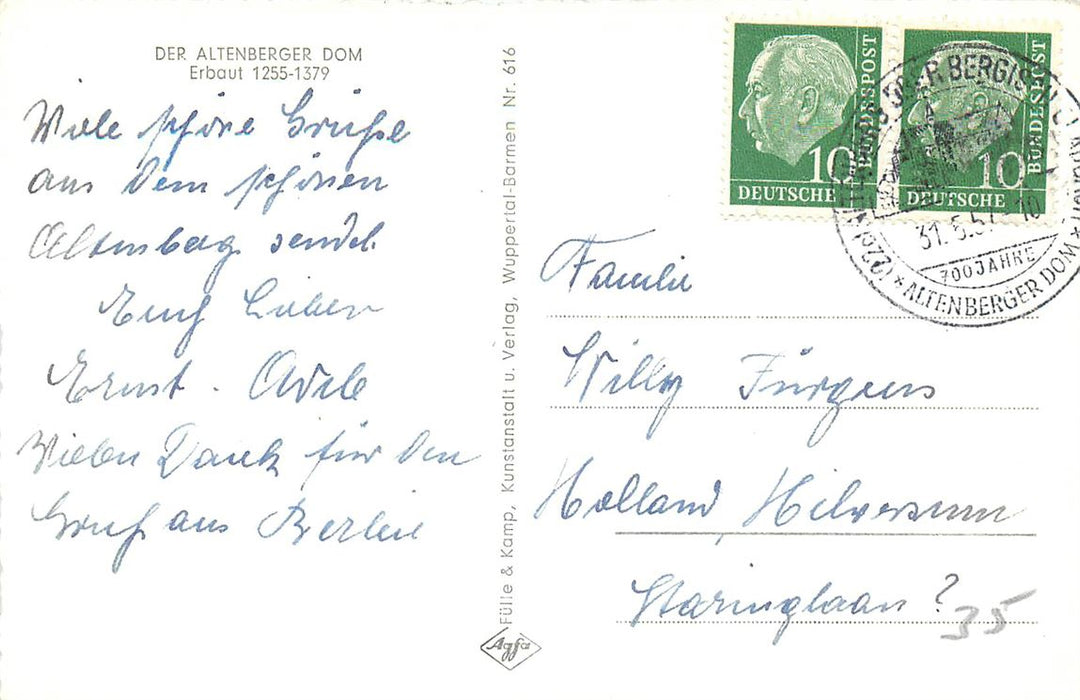 DER ALTENBERGER DOM
Erbaut 1255-1379
Viele schöne Grüße
aus dem schönen
Altenberg sendet
Euch Lieben
Ernst. Adele
Vielen Dank für den
Gruß aus Berlin
Fülle & Kamp, Kunstanstalt u. Verlag, Wuppertal-Barmen Nr. 616
Agfa
DEUTSCHE BUNDESPOST
10
DEUTSCHE BUNDESPOST
10
ÜBER BERGISCH
31.5.57
700 JAHRE
* ALTENBERGER DOM *
Familie
Willy Jürgens
Holland Hilversum
Staringlaan ?
35